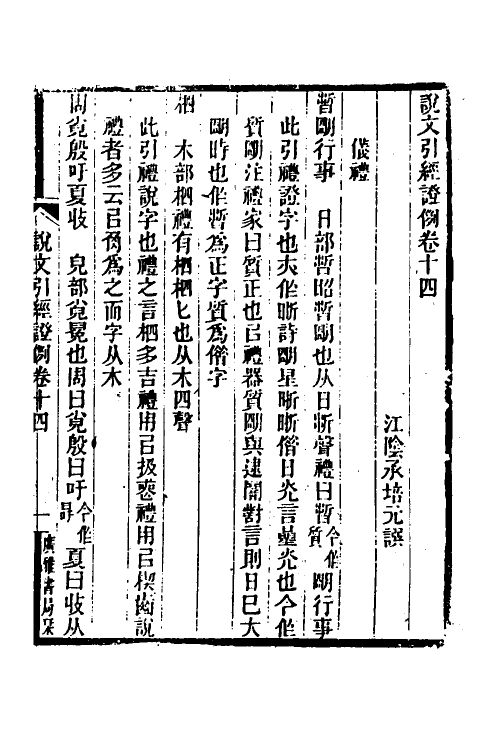 說文引經證例卷十四
江陰承培元譔
儀禮
晢朙行事　日部晢昭晢朙也从日折聲禮曰晢今作質朙行事
此引禮證字也夾作晣詩朙星晣晣偕日光言蓋光也今作
質朙注禮家曰質正也㠯禮器質朙與逮闇對言則日巳大
朙時也作晢為正字質為偕字
柶　木部柶禮有柶柶匕也从木四聲
此引禮說字也禮之言柶多吉禮用㠯扱喪禮用㠯楔齒說
禮者多云㠯角為之而字从木
周覍殷吁夏收　皃部覍冕也周曰覍殷曰吁今作冔夏曰收从
說文引經證例卷十四
一
廣雅書局栞